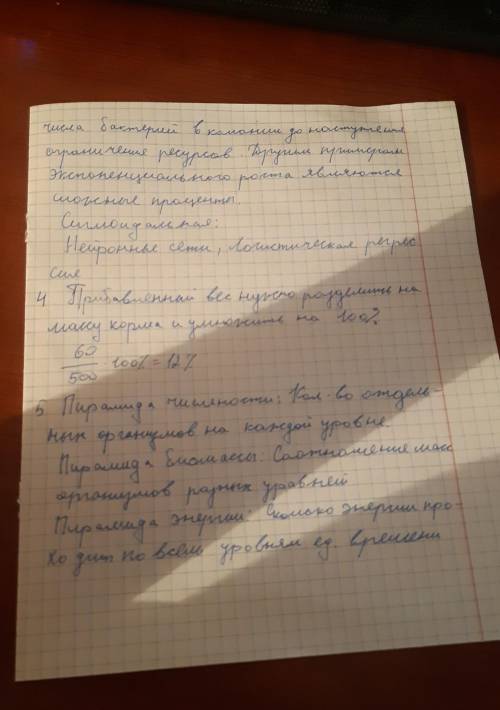 числа бактерий в колонии до наступления
ограничения ресурсов. Другим примером
экспоненциального роста являются
сложные проценты.
Сигмоидальная:
Нейронные сети, логистическая регрес
сия
4 Прибавленный вес нужно разделить на
массу корма и умножить на 100%
60
500 · 100% = 12%
5 Пирамида числености: Кол-во отдель-
ных организмов на каждой уровне.
Пирамида биомассы: Соотношение масс
организмов разных уровней
Пирамида энергии: Сколько энергии про-
ходит по всем уровням ед. времени